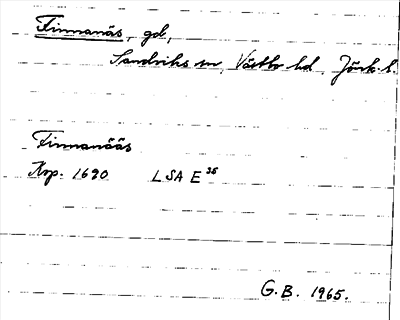 Finnanäs, gd,
Sandviks sn, Västbo hd, Jönk. l.
Finnanääs
Kop. 1690 LSA E 36
G.B. 1965.